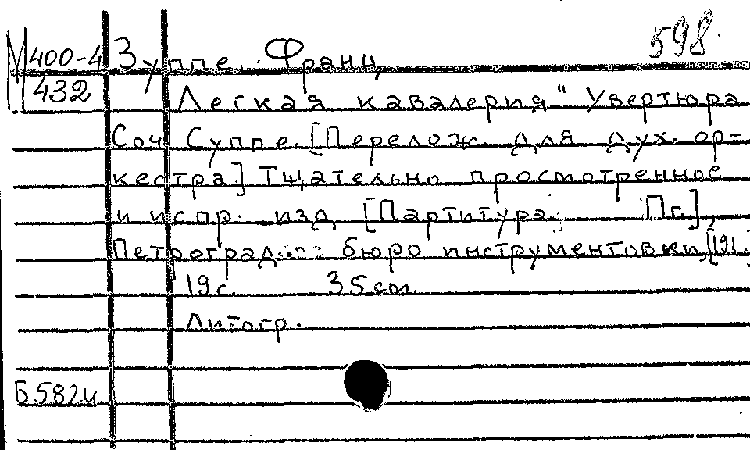 М400-4 Зуппе, Франц 598.
432 Легкая кавалерия" Увертюра
Соч Суппе. [Перелож. для дух. ор-
кестра] Тщательно просмотренное
и испр. изд [Партитура. Пг.],
Петроград. бюро инструментовки, [191.
19 с. 35 см
Литогр.
Б582и